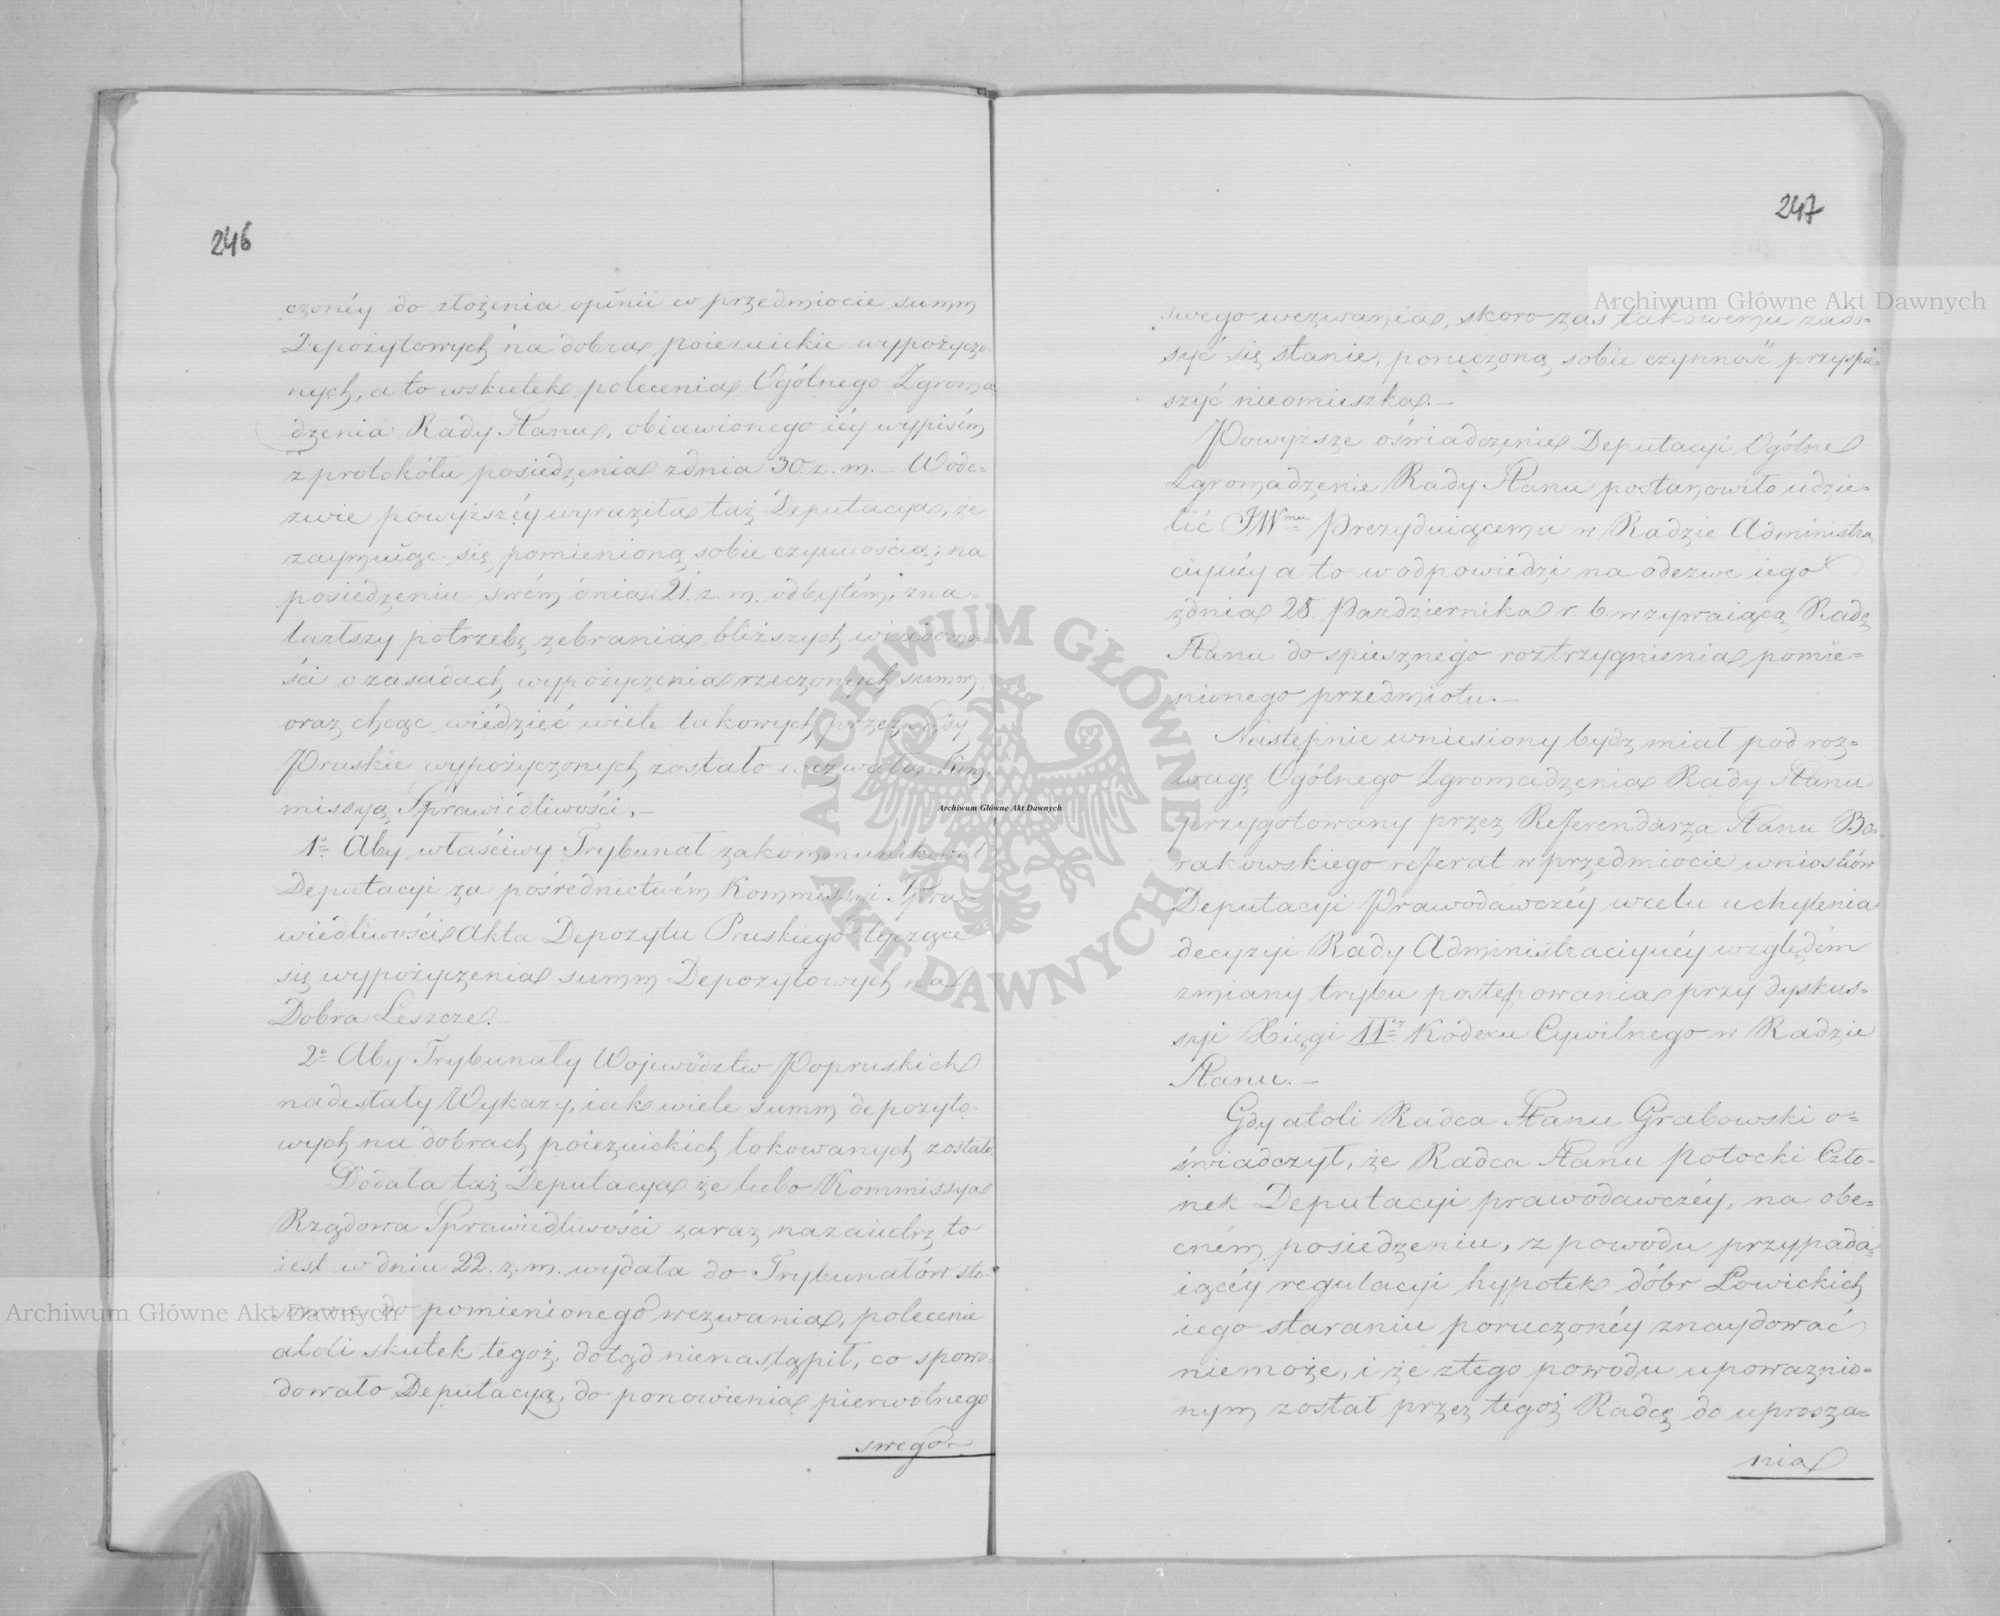 246
czonéy do złożenia opinii w przedmiocie summ
Depozytowych na dobra poiezuickie wypożyczo-
nych, a to wskutek polecenia Ogólnego Zgroma
dzenia Rady Stanu, obiawionego iéy wypisém
z protokółu posiedzenia zdnia 30. z. m. – Wode-
zwie powyższéy wyraziła taż Deputacya, że
zaymuiąc się pomienioną sobie czynnością; na
posiedzeniu swém dnia 21. z. m. odbytém, zna-
lazłszy potrzebę zebrania bliższych wiadomo-
ści o zasadach wypożyczenia rzeczonych summ,
oraz chcąc wiedzieć wiele takowych przez
Pruskie wypożyczonych zostało wezwała Kom-
missyą Sprawiedliwości. –
1º Aby właściwy Trybunał zakommunikował
Deputacyi za pośrednictwém Kommissyi Spra-
wiedliwości Akta Depozytu Pruskiego tyczące
się wypożyczenia summ Depozytowych na
Dobra Leszcze. –
2º Aby Trybunały Województw Popruskich
nadesłały Wykazy, iak wiele summ depozyto-
wych na dobrach poiezuickich lokowanych zostało.
Dodała taż Deputacya że lubo Kommissya
Rządowa Sprawiedliwości zaraz nazaiutrz to
iest w dniu 22. z. m. wydała do Trybunałów sto-
sowne do pomienionego wezwania, polecenie
atoli skutek tegoż, dotąd nienastąpił, co spowo-
dowało Deputacyą, do ponowienia pierwotnego
swego –
247
swego wezwania, skoro zaś takowemu zado-
syć się stanie, poruczoną sobie czynność przyspie-
szyć nieomieszka. –
Powyższe oświadczenie Deputacyi Ogólne
Zgromadzenie Rady Stanu postanowiło udzie-
lić JWmu Prezyduiącemu w Radzie Administra
cyinéy a to w odpowiedzi na odezwę iego
zdnia 28. Pazdziernika r. b. wzywaiącą Radę
Stanu do spiesznego roztrzygnienia pomie-
nionego przedmiotu. –
Następnie wniesiony bydź miał pod roz-
wagę Ogólnego Zgromadzenia Rady Stanu
przygotowany przez Referendarza Stanu Bo-
rakowskiego referat w przedmiocie wniosków
Deputacyi Prawodawczéy wcelu uchylenia
decyzyi Rady Administracyinéy względém
zmiany trybu postępowania przy dyskus-
syi Xięgi II. Kodexu Cywilnego w Radzie
Stanu. –
Gdy atoli Radca Stanu Grabowski o-
świadczył, że Radca Stanu Potocki Czło-
nek Deputacyi prawodawczéy, na obe-
cném posiedzeniu, z powodu przypada-
iącéy regulacyi hypotek dóbr Łowickich
iego staraniu poruczonéy znaydować
niemoże, i że ztego powodu upoważnio-
nym został przez tegoż Radcę do uprosze-
nia
Archiwum Główne Akt Dawnych
Archiwum Główne Akt Dawnych
Archiwum Główne Akt Dawnych
ARCHIWUM GŁÓWNE AKT DAWNYCH